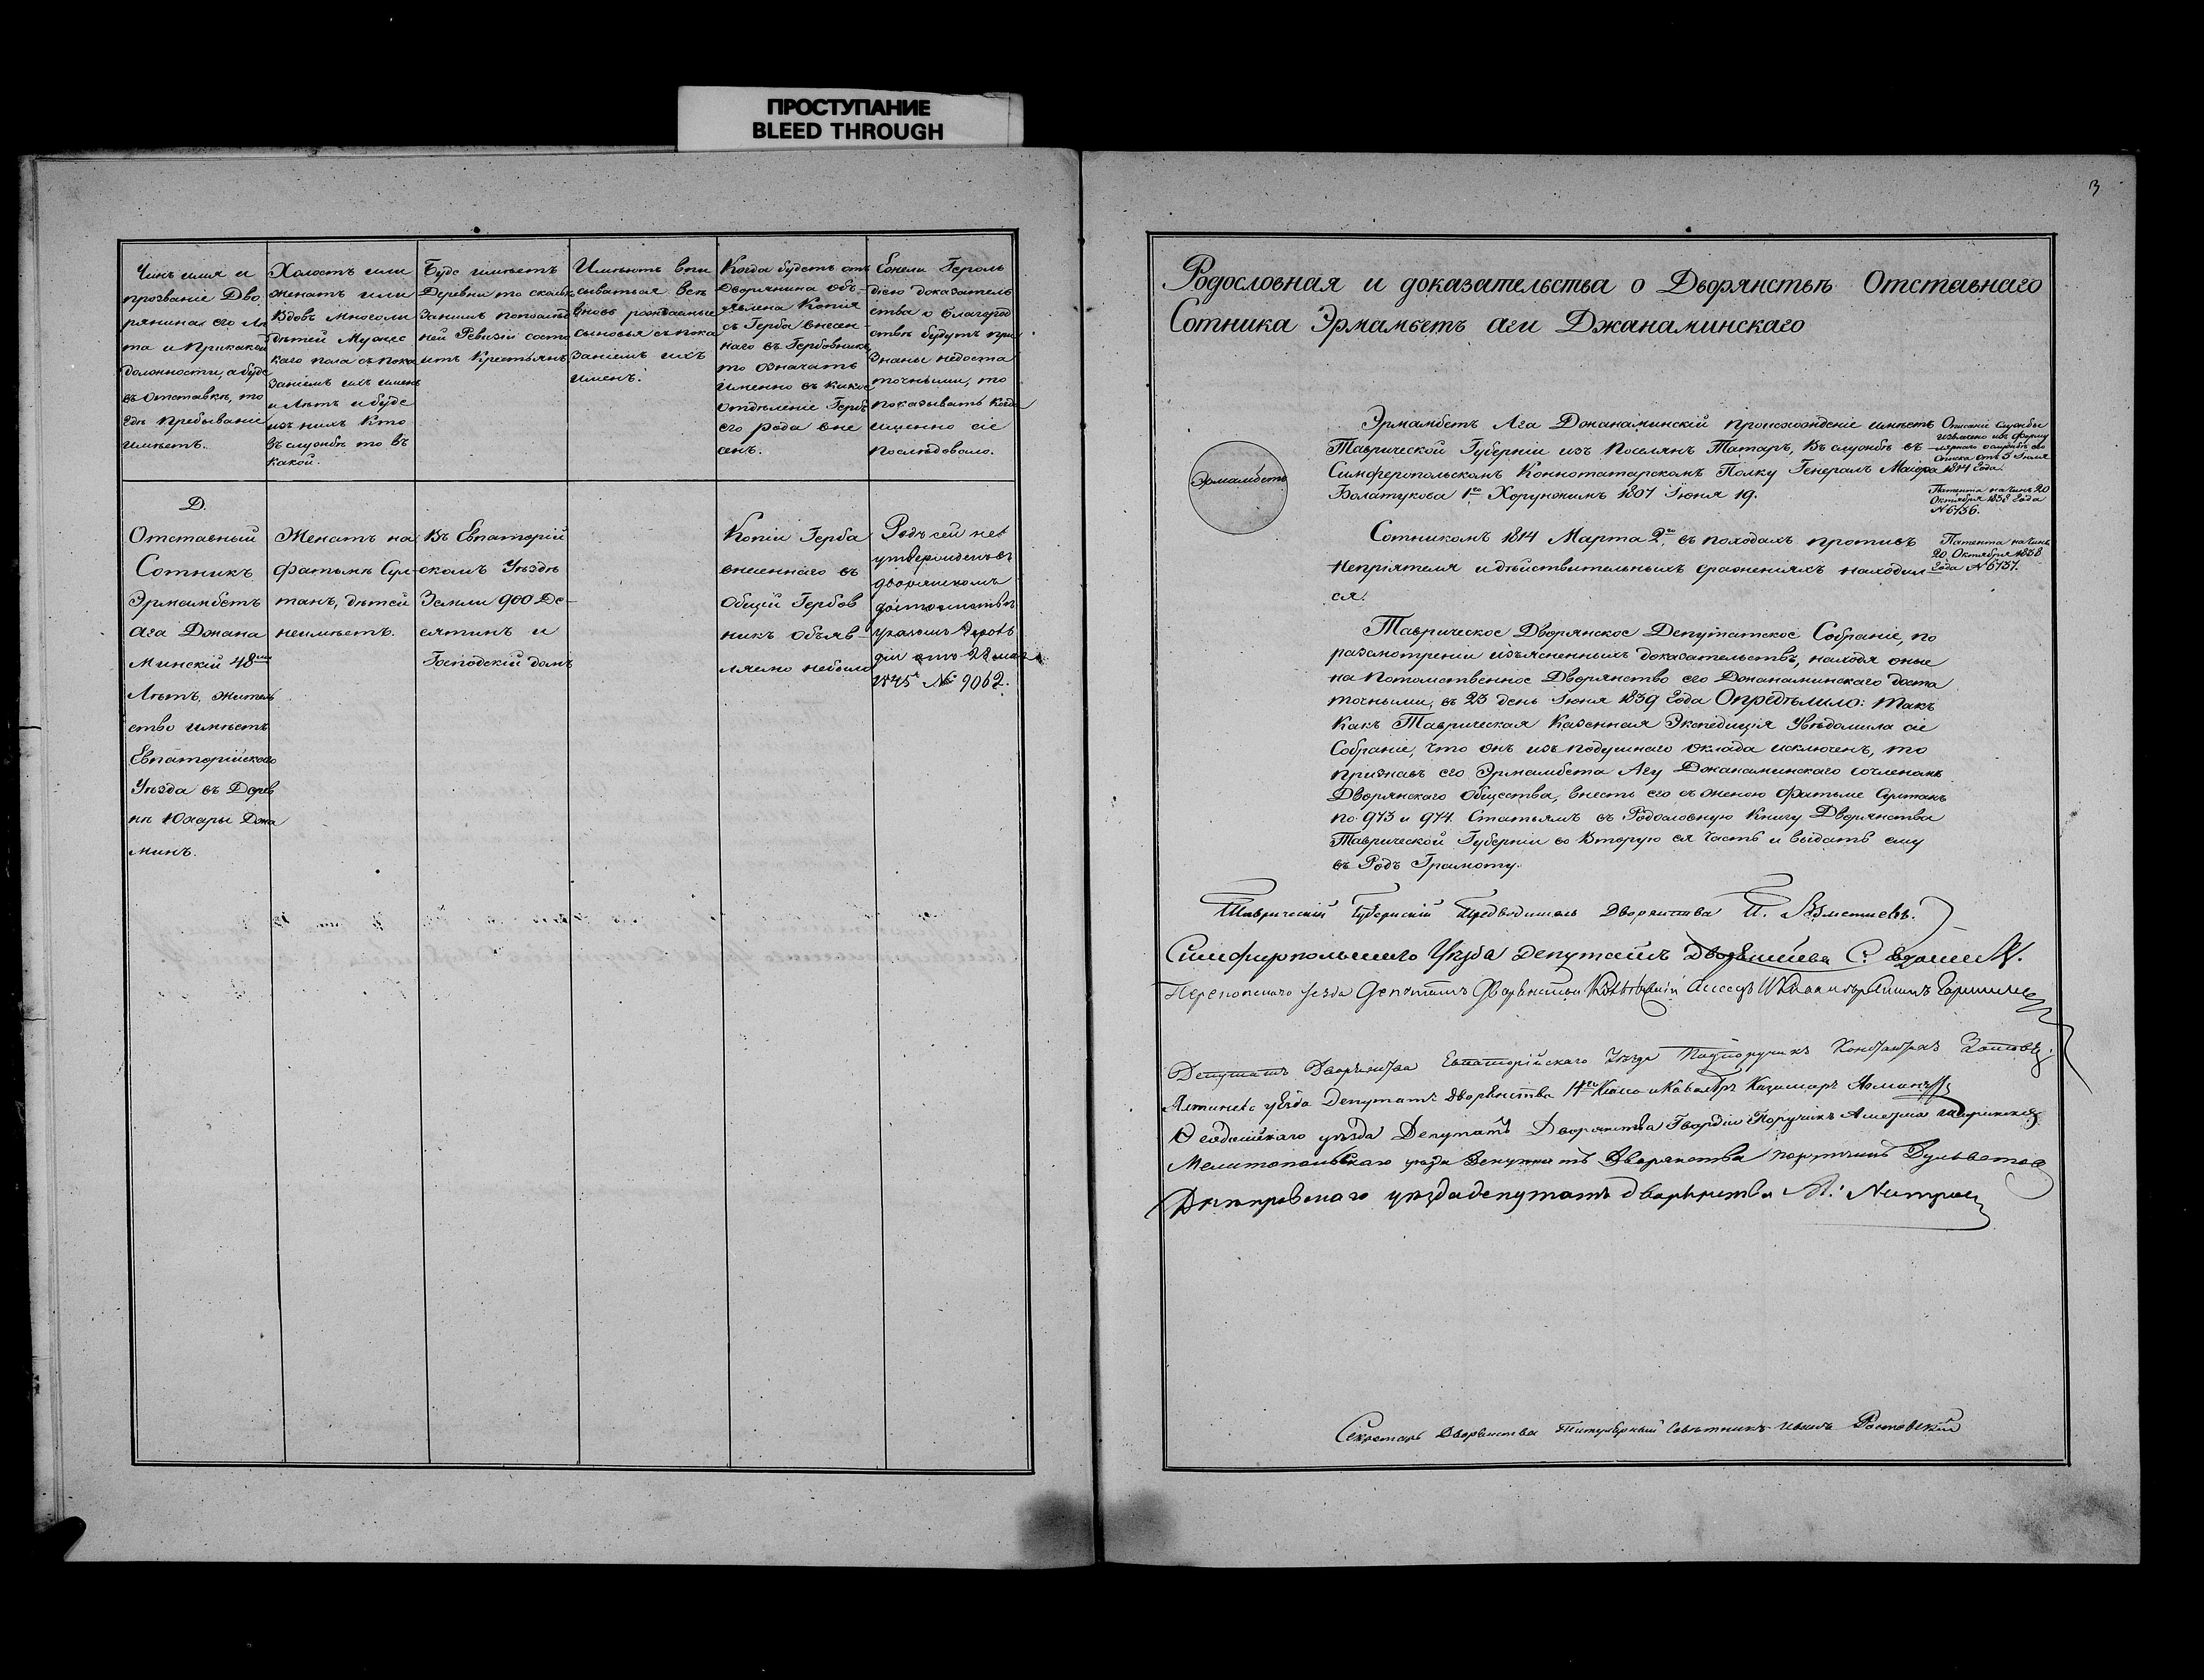 ПРОСТУПАНИЕ
BLEED THROUGH
Чинъ имя и
прозваніе Дво
рянина его Лѣ
та и При какой
должности, абуде
въ Отставкѣ, то
гдѣ пребываніе
имѣетъ.
Холостъ или
женатъ или
Вдовъ многоли
дѣтей Мужес
каго пола съ пока
заніемъ ихъ именъ
и Лѣтъ и буде
изъ нихъ Кто
въ службѣ то въ
какой.
Буде имѣетъ
Деревни то сколько
Занимъ попослѣд
ней Ревизіи состо
итъ Крестьянъ
Имѣютъ впи
сываться всѣ
вновь рожденные
сыновья съ пока
заніемъ ихъ
именъ.
Когда будетъ отъ
Дворянина объ-
явлена Копія
съ Герба внесен-
наго въ Гербовникъ,
то означать
именно въ какое
отдѣленіе Гербъ
его рода вне
сенъ.
Ежели Героль
діею доказатель
ства о благород
ствѣ будутъ при
знаны недоста
точными, то
показывать когда
именно сіе
послѣдовало.
Д.
Отставный
Сотникъ
Эрмамбетъ
ага Джана
Минскій 48ми
Лѣтъ, житель
ство имѣетъ
Евпаторійскаго
Уѣзда въ Дерев
нѣ Юхары Джа
минъ.
Женатъ на
Фатьмѣ Сул-
танъ, дѣтей
неимѣетъ.
Въ Евпаторій
скомъ Уѣздѣ
Земли 900 Де-
сятинъ и
Господскій домъ
Копіи Герба
внесеннаго въ
Общій Гербов
никъ объяв-
ляемо небыло
Родъ сей не
утвержденъ въ
дворянскомъ
достоинствѣ
указомъ Герольд
діи отъ 28 мая
1845 № 9062.
3
Родословная и доказательства о Дворянствѣ Отставнаго
Сотника Эрмамбетъ аги Джанаминскаго
Эрмамбетъ
Эрмамбетъ Ага Джанаминскій происхожденіе имѣетъ
Таврической Губерніи изъ Поселянъ Татаръ, Въ службѣ въ
Симферопольскомъ Коннотатарскомъ Полку Генералъ Маіора
Балатукова 1го Хорунжимъ 1807 Іюня 19.
Описаніе службы
извлечено изъ форму
лярнаго о службѣ его
списка отъ 5 Іюля
1814 Года.
Патента на чинъ 20
Октября 1838 Года
№ 6736.
Сотникомъ 1814 Марта 2го, въ походахъ противъ
Непріятеля и дѣйствительныхъ сраженіяхъ находил-
ся.
Патента на чинъ
20 Октября 1838
Года № 6737.
Таврическое Дворянское Депутатское Собраніе, по
разсмотреніи изъясненныхъ доказательствъ, находя оные
на Потомственное Дворянство его Джанаминскаго доста
точными, въ 23 день Іюня 1839 Года Опредѣлило: такъ
какъ Таврическая Казенная Экспедиція увѣдомила сіе
Собраніе, что онъ изъ подушнаго оклада исключенъ, то
признавъ его Эрмамбета Агу Джанаминскаго сочленомъ
Дворянскаго Общества, внесть его съ женою Фатьме Султанъ
по 973 и 974. Статьямъ въ Родословную Книгу Дворянства
Таврической Губерніи во Вторую ея часть и выдать ему
въ Родъ Грамоту.
Таврическій Губернскій Предводитель Дворянства
Симферопольскаго Уѣзда Депутатъ Дворянства
Перекопскаго уезда Депутатъ Дворянства
Депутатъ Дворянства Евпаторійскаго Уѣзда Подпоручикъ
Ялтинскаго уѣзда Депутатъ Дворянства 14го Класса и Кавалеръ Казимаръ
Ѳеодосійскаго уѣзда Депутатъ Дворянства Гвардіи Поручикъ Аметша Ширинскій
Мелитопольскаго уезда Депутатъ Дворянства поручикъ
Днѣпровскаго уѣзда депутатъ дворянства
Секретарь Дворянства Титулярный Совѣтникъ Иванъ Ростовскій